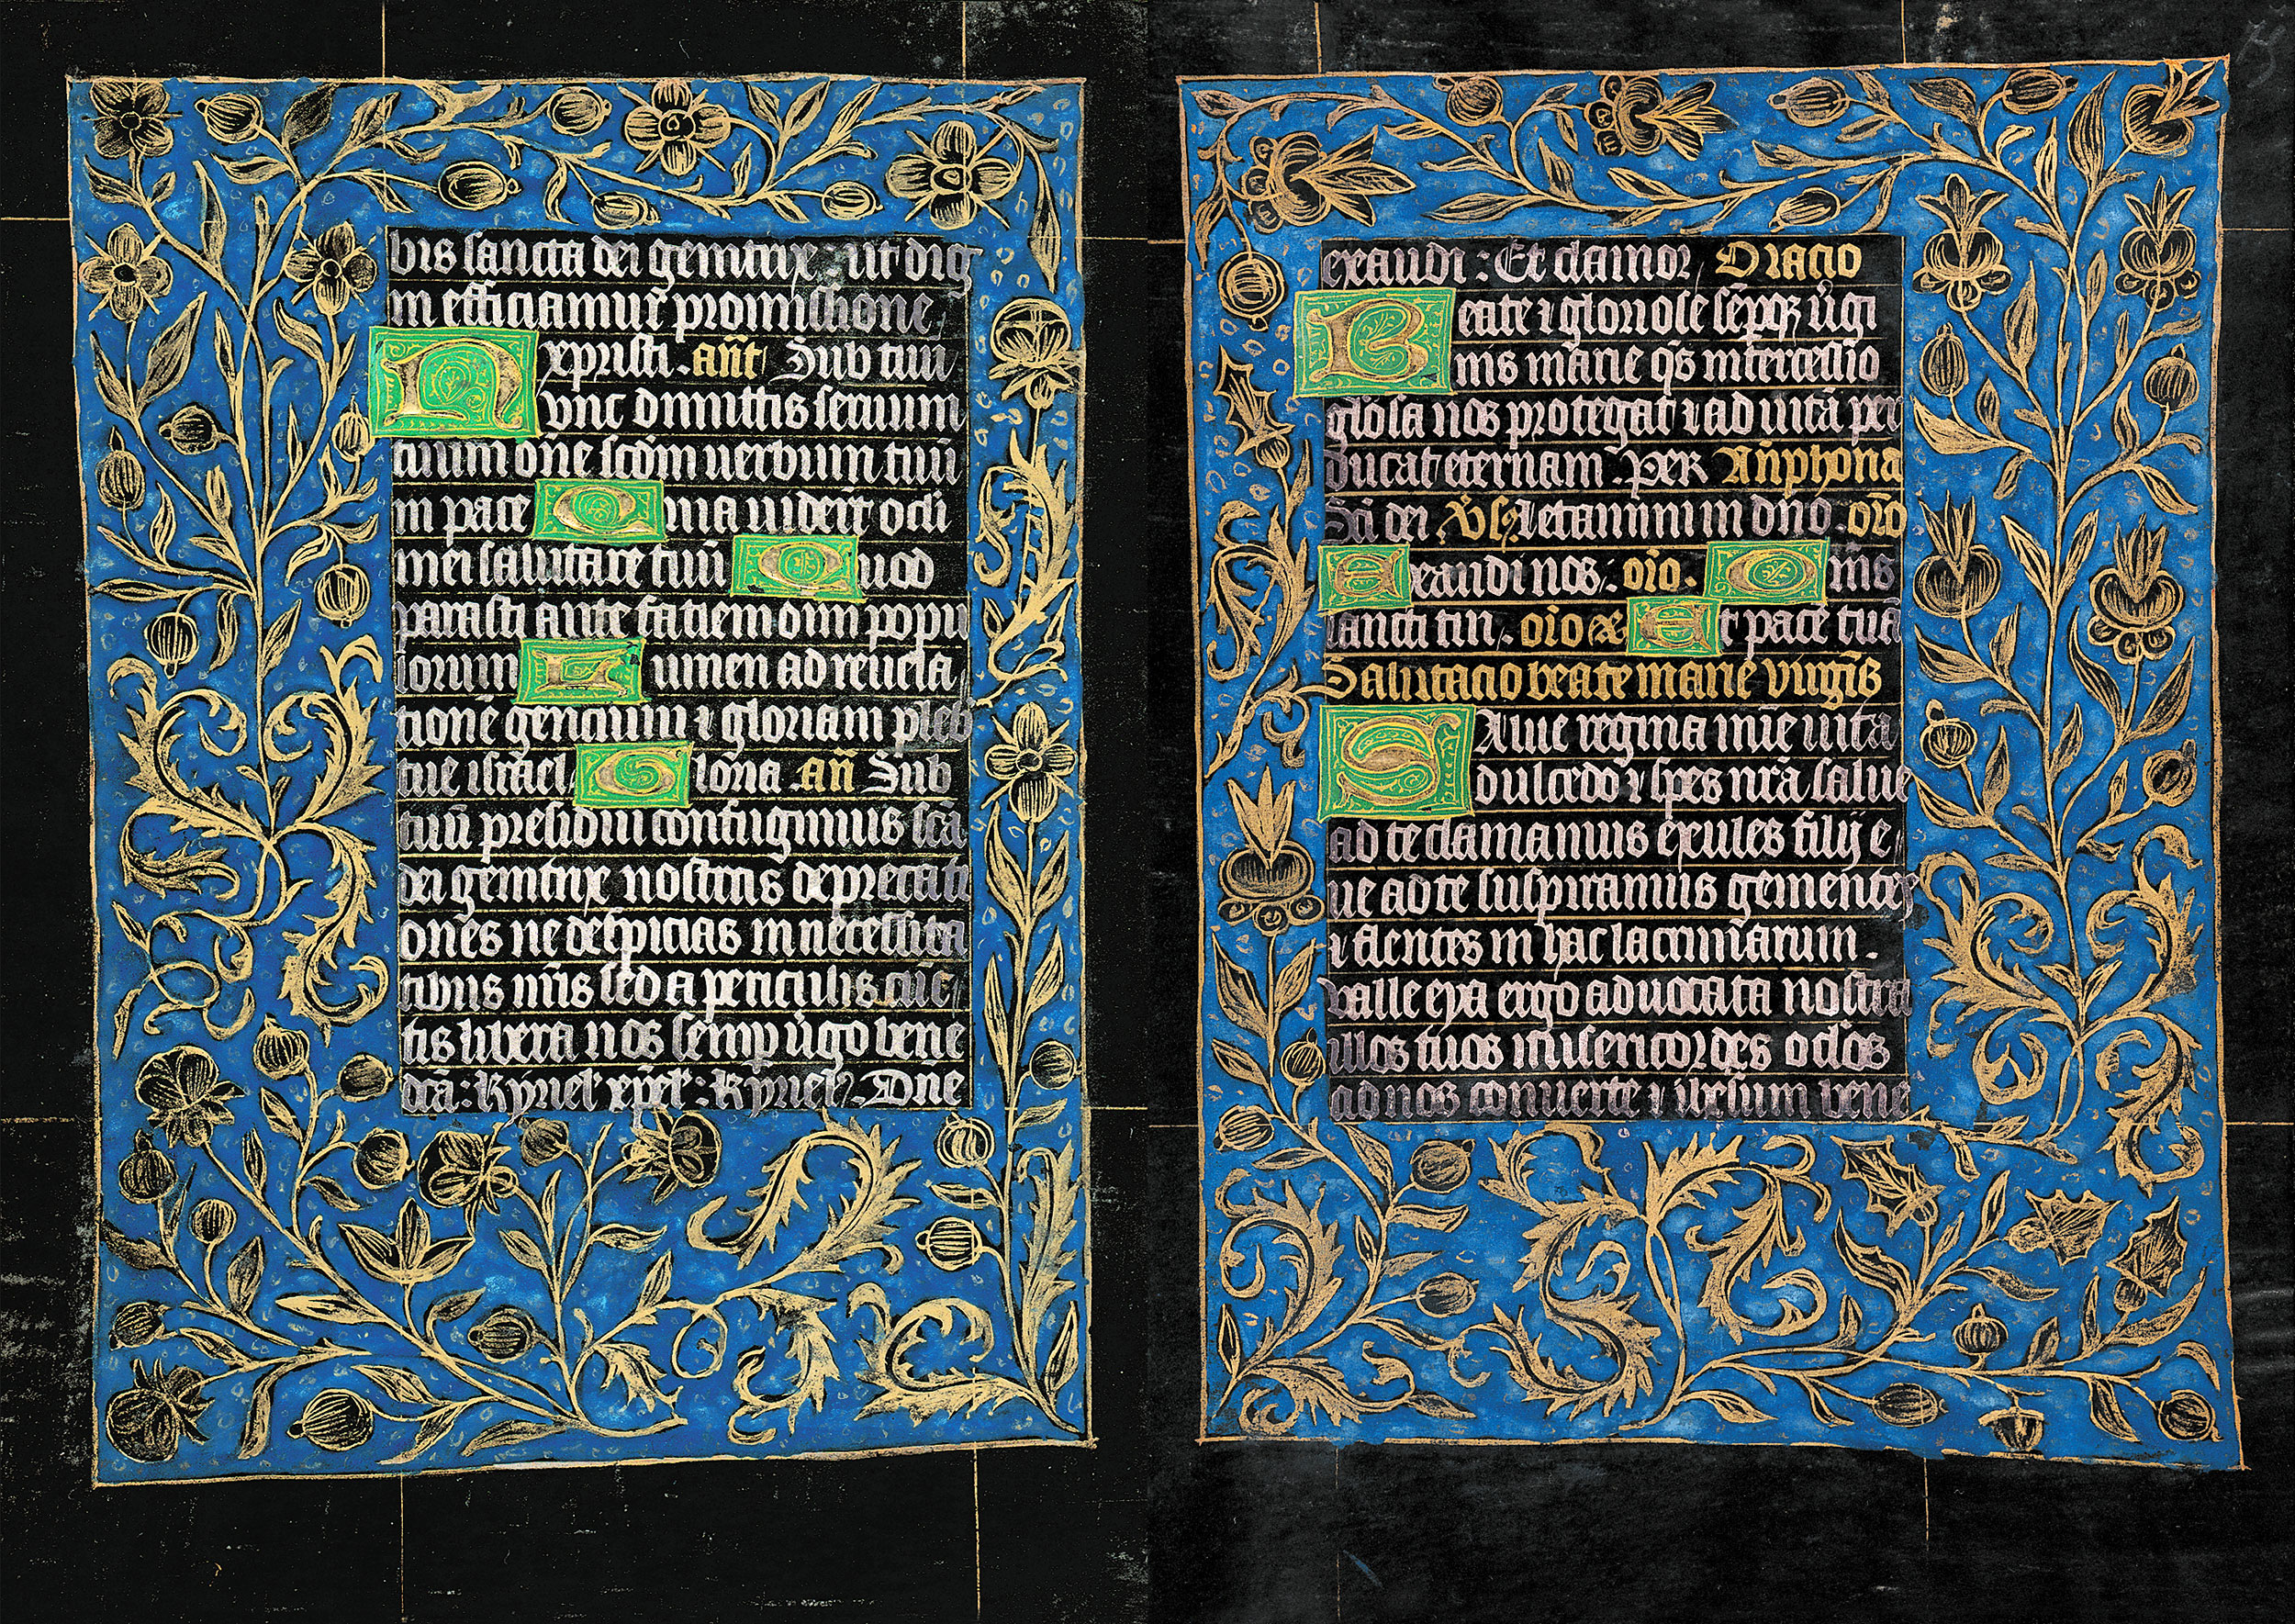 bis sancta dei genitrix : ut dig
ni efficiamur promissione
xpristi . an̄t Sub tuū
Nvnc dimittis seruum
tuum dn̄e scd̄m uerbum tuū
in pace Quia uider̄t oculi
mei salutare tuū Quod
parasti ante faciem oīm popu
lorum Lumen ad reuela
tionē gentium ⁊ gloriam pleb
tue israel Gloria . an̄ Sub
tuū presidiū confugimus sc̄a
dei genitrix nostras deprecati
ones ne despicias in necessita
tibus nr̄is sed a periculis cūc
tis libera nos semp ūgo bene
dc̄a : kyriel' xp̄el' : kyriel' . Dn̄e
exaudi : Et clamor Oracio
Beate ⁊ gloriose sēpqꝫ v̄gi
nis marie qs̄ intercessio
gl̄osa nos protegat ⁊ ad uitā per
ducat eternam . Per An̄phona
Sc̄i dei . v̄s Letamini in dn̄o . or̄o
Exaudi nos . or̄o . Omīs
sancti tui . or̄o Et pace tuā
Salutacio beate marie virgīs
SAlue regina mīe uita
dulcedo ⁊ spes nr̄a salue
ad te clamamus exules filij e
ue ad te suspiramus gementes
⁊ flentes in hac lacrimarum .
valle eya ergo aduocata nostra
illos tuos misericordes ocl̄os
ad nos conuerte ⁊ ih̄esum bene